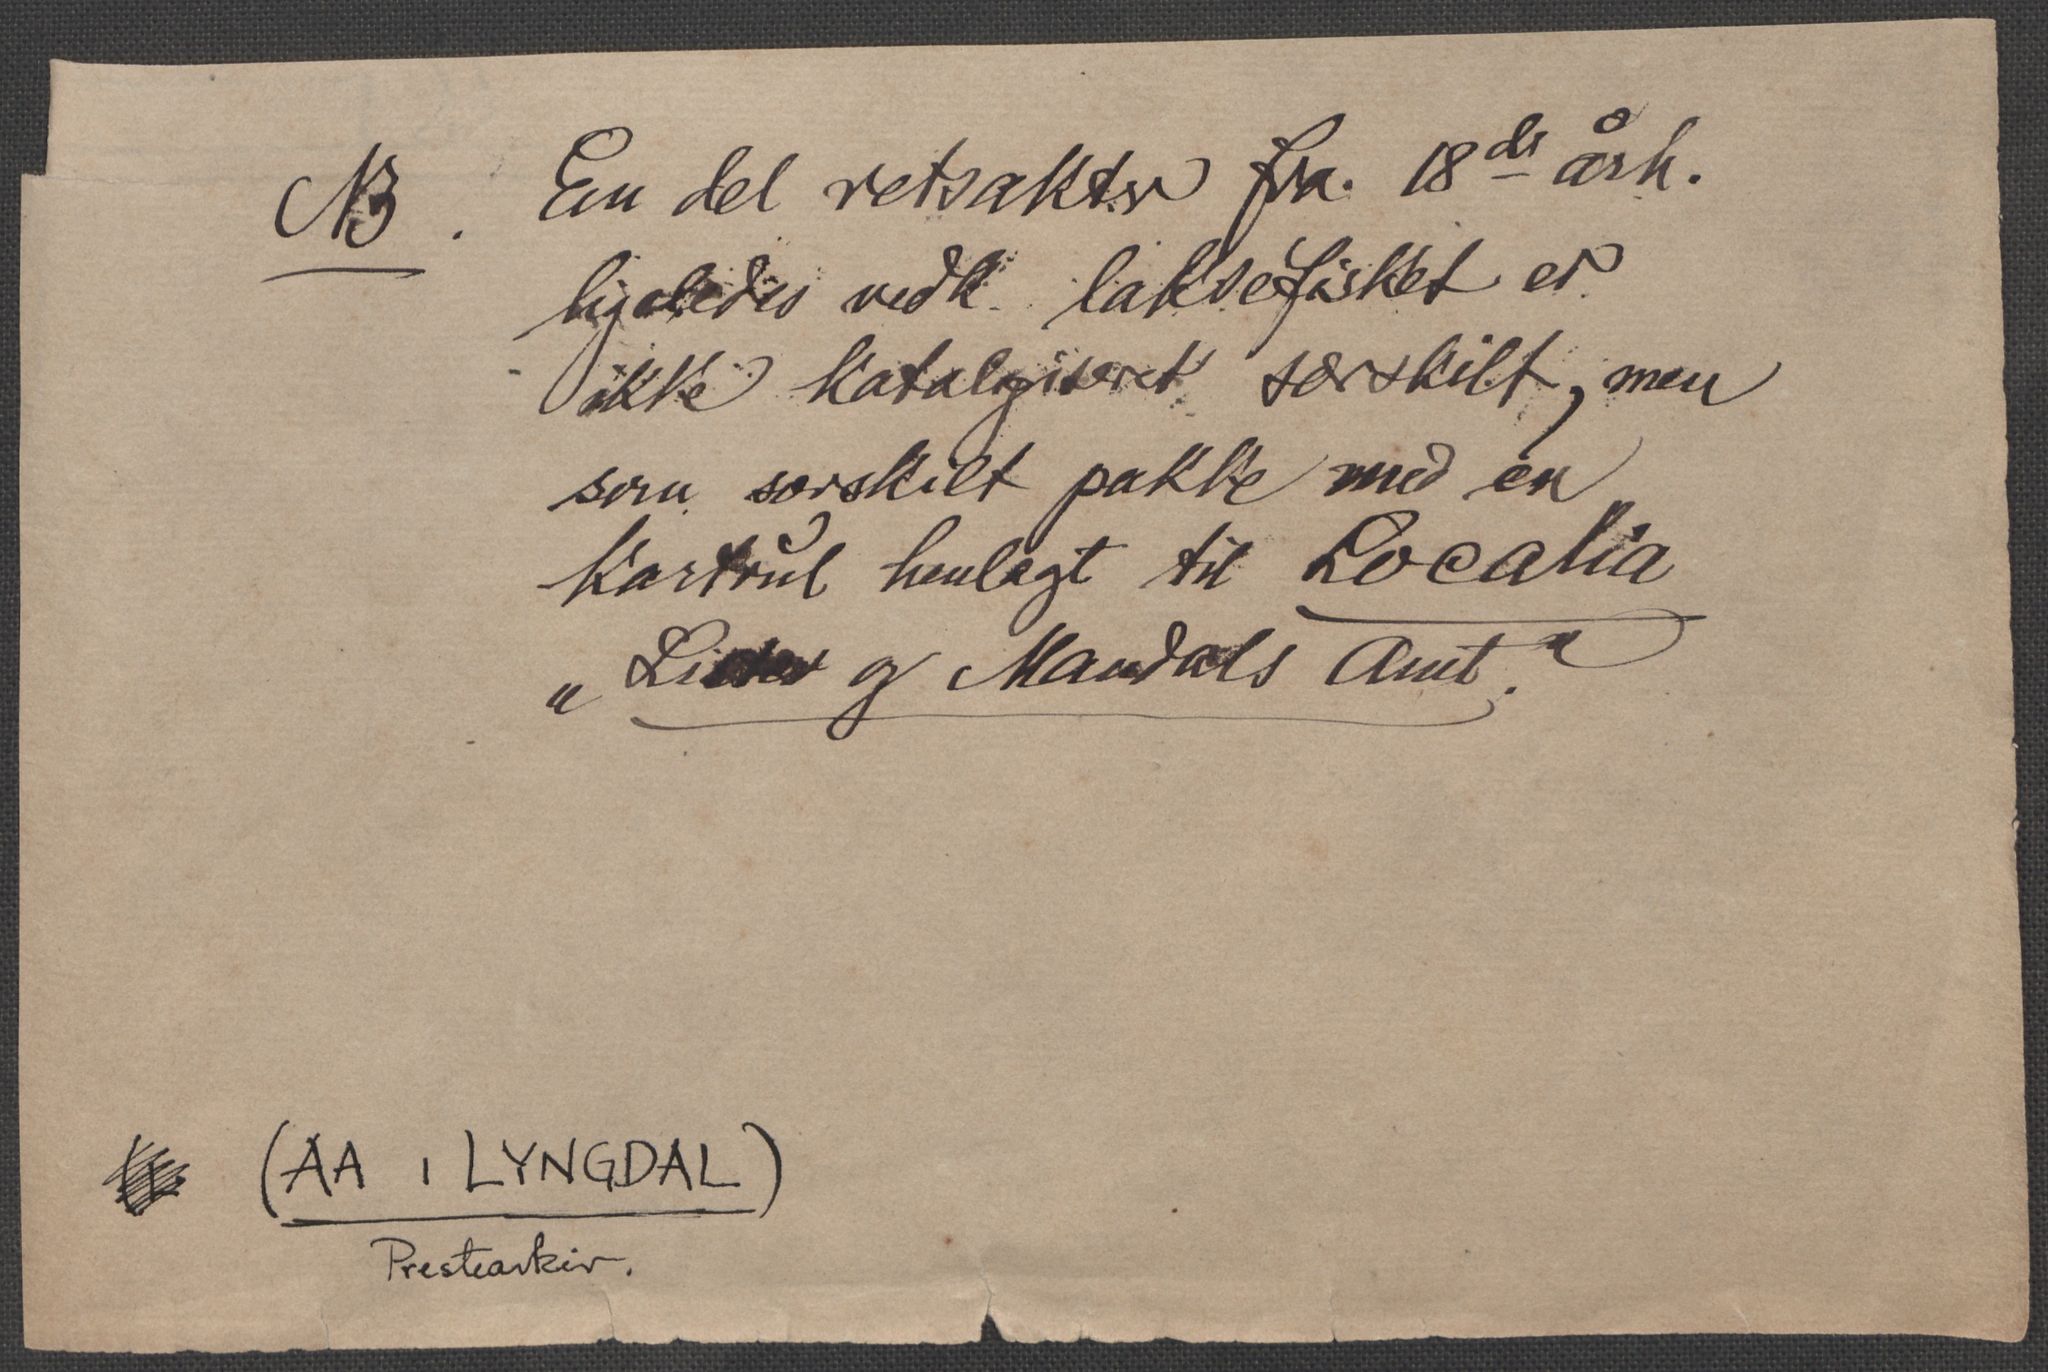 NB. En del retsakter fra. 18de årh.
ligeledes vedk. laksefisket er
ikke katalogiseret særskilt, men
som særskilt pakke med en
kartrul henlagt til Localia
„Lister og Mandals Amt."
(AA I LYNGDAL)
Prestearkiv.